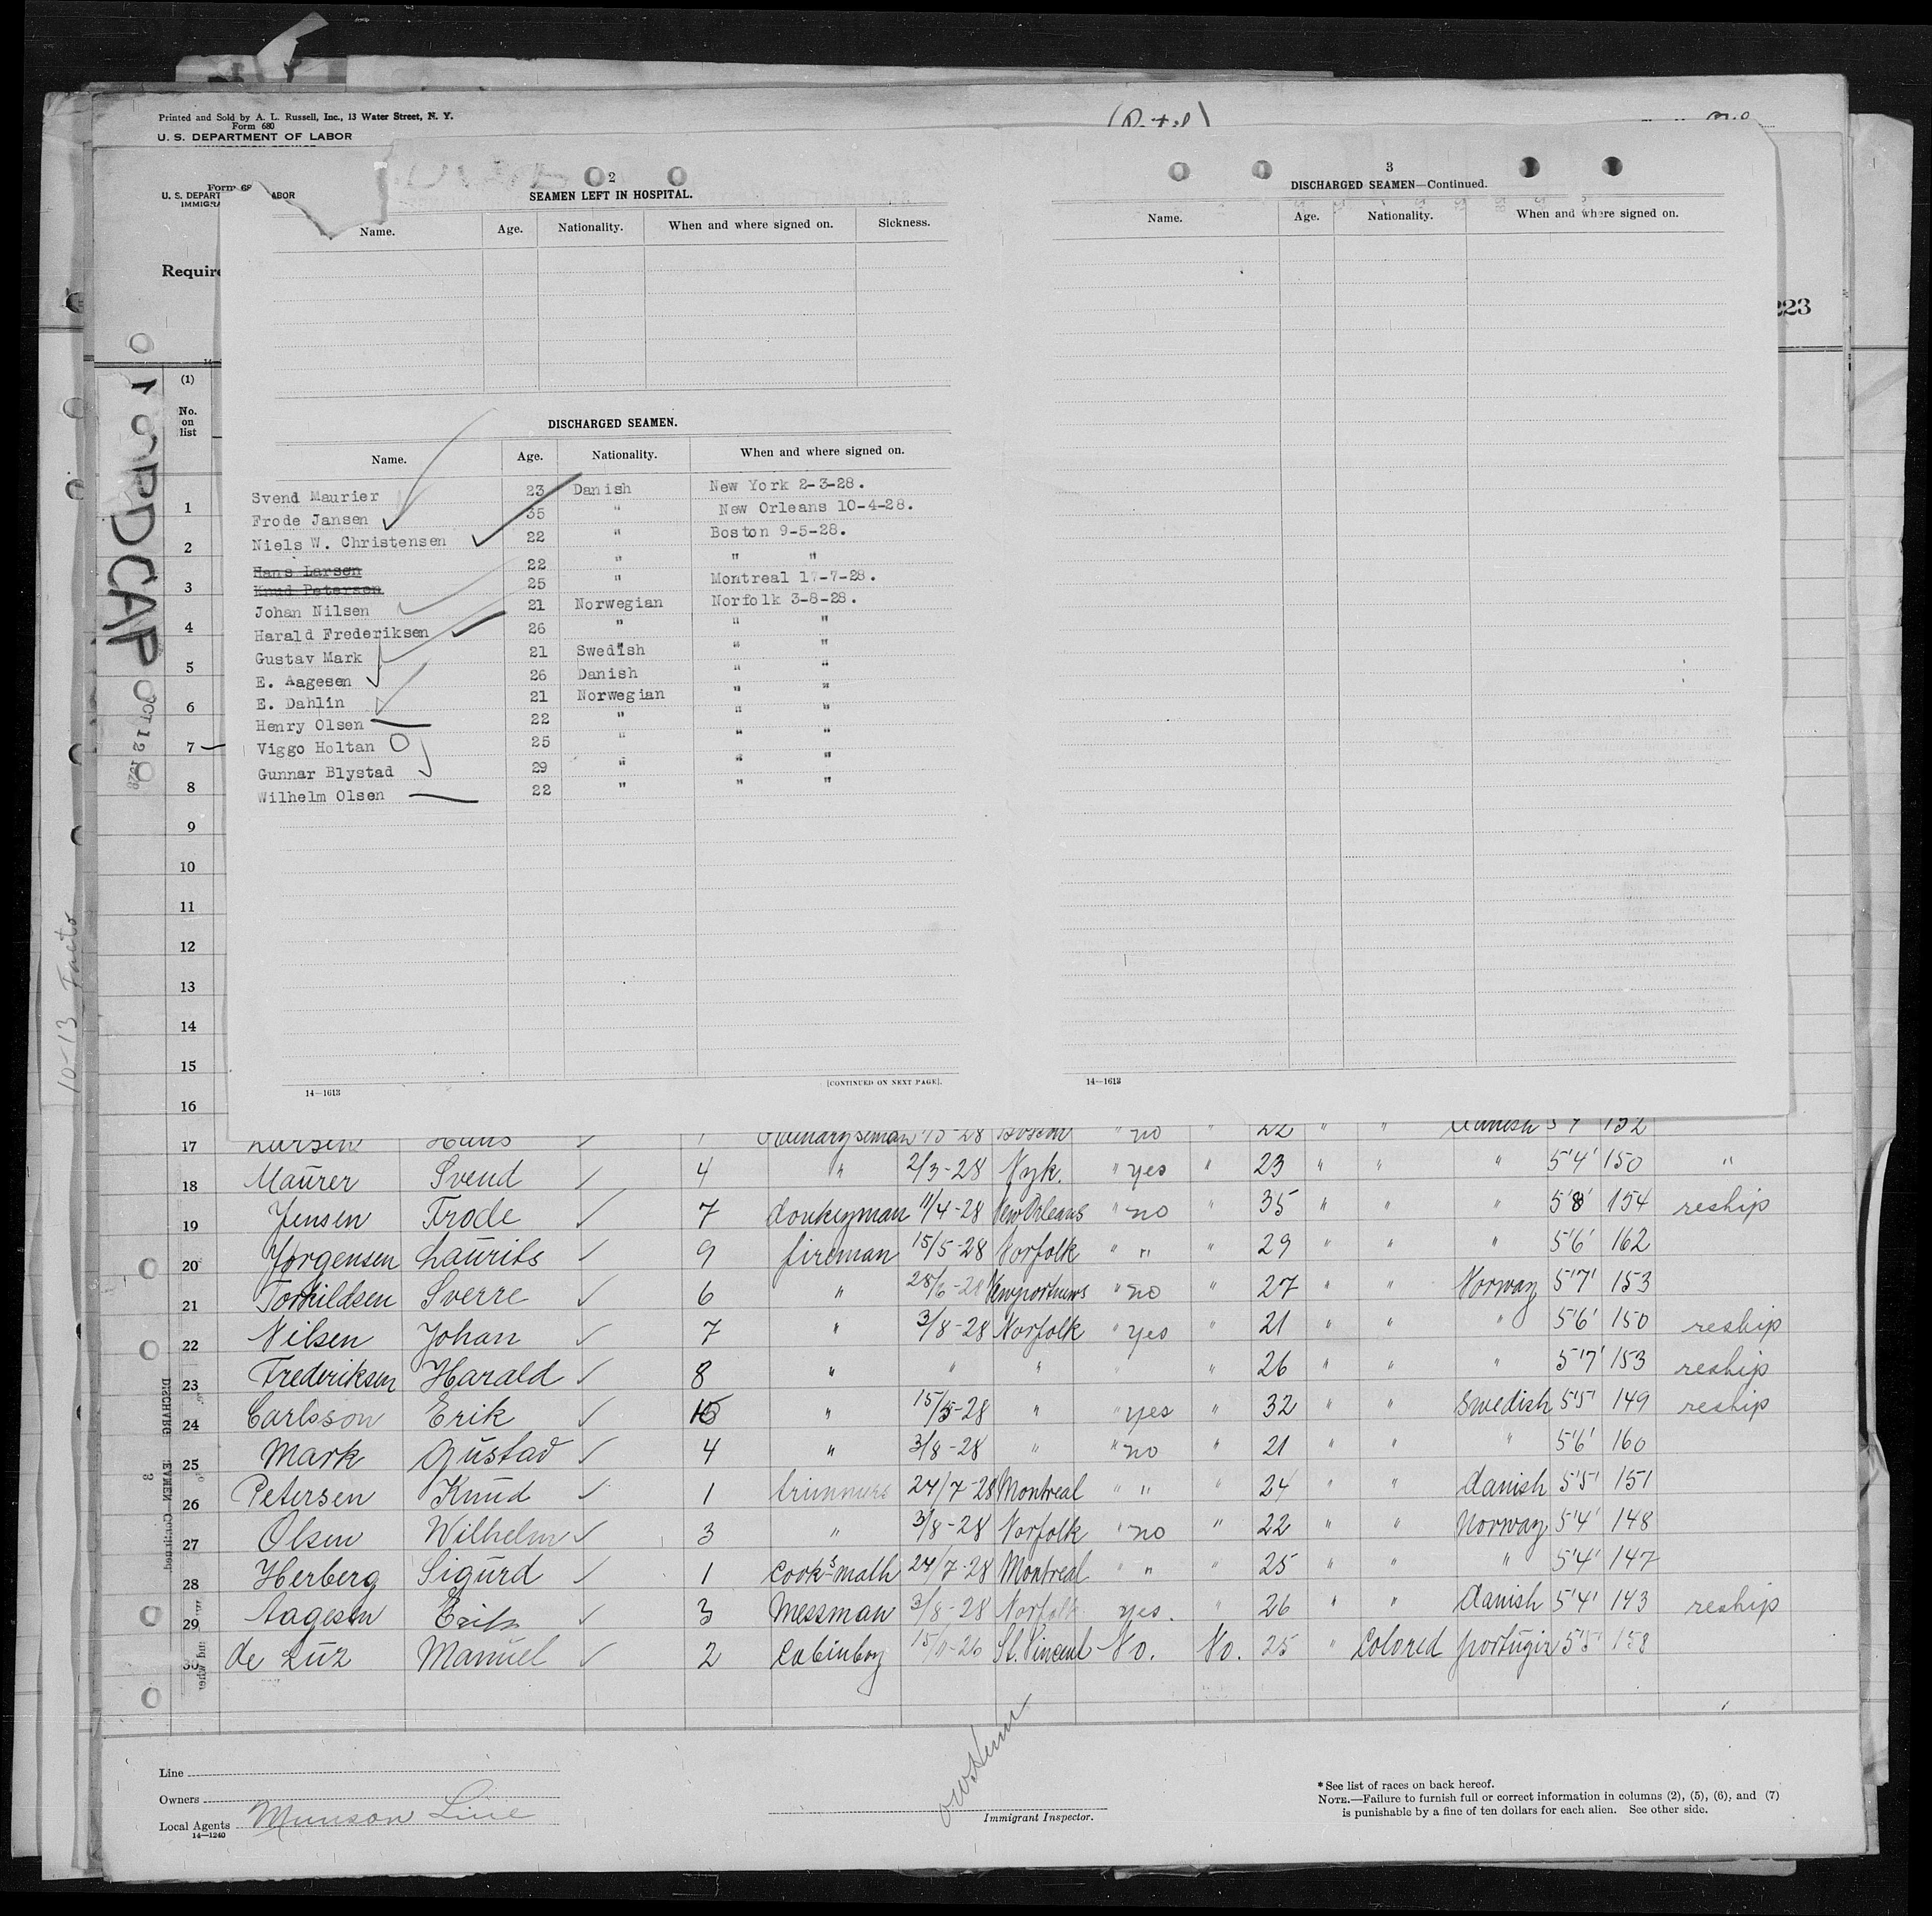 Printed and Sold by A. L. Russell, Inc., 13 Water Street, N. Y.
Form 680
U. S. DEPARTMENT OF LABOR
Form 68
U. S. DEPART ABOR
IMMIGRA
Require
223
(1)
No. on list
NORDCAP
OCT 12 1928
10-13 Facto
2
SEAMEN LEFT IN HOSPITAL.
Name. Age. Nationality. When and where signed on. Sickness.
DISCHARGED SEAMEN.
Name. Age. Nationality. When and where signed on.
Svend Maurier 23 Danish New York 2-3-28.
Frode Jansen 35 " New Orleans 10-4-28.
Niels W. Christensen 22 " Boston 9-5-28.
Hans Larsen 22 " " "
Knud Petersen 25 " Montreal 17-7-28.
Johan Nilsen 21 Norwegian Norfolk 3-8-28.
Harald Frederiksen 26 " " "
Gustav Mark 21 Swedish " "
E. Aagesen 26 Danish " "
E. Dahlin 21 Norwegian " "
Henry Olsen 22 " " "
Viggo Holtan 25 " " "
Gunnar Blystad 29 " " "
Wilhelm Olsen 22 " " "
14—1613
[CONTINUED ON NEXT PAGE].
3
DISCHARGED SEAMEN—Continued.
Name. Age. Nationality. When and where signed on.
14—1613
1
2
3
4
5
6
7
8
9
10
11
12
13
14
15
16
17 Larsen Hans 1 Boston " no " 22 " " danish 5'7' 152
18 Maurer Svend 4 " 2/3-28 Nyk. " yes " 23 " " " 5'4' 150 "
19 Jensen Frode 7 donkeyman 11/4-28 New Orleans " no " 35 " " " 5'8' 154 reship
20 Jørgensen Laurits 9 fireman 15/5-28 Norfolk " " " 29 " " " 5'6' 162
21 Torkildsen Sverre 6 " 28/6-28 Newportnews " no " 27 " " Norway 5'7' 153
22 Nilsen Johan 7 " 3/8-28 Norfolk " yes " 21 " " " 5'6' 150 reship
23 Frederiksen Harald 8 " " " " " 26 " " " 5'7' 153 reship
24 Carlsson Erik 15 " 15/5-28 " " yes " 32 " " Swedish 5'5' 149 reship
25 Mark Gustav 4 " 3/8-28 " " no " 21 " " " 5'6' 160
26 Petersen Knud 1 trimmers 24/7-28 Montreal " " " 24 " " danish 5'5' 151
27 Olsen Wilhelm 3 " 3/8-28 Norfolk " no " 22 " " Norway 5'4' 148
28 Herberg Sigurd 1 cooks math 24/7-28 Montreal " " " 25 " " " 5'4' 147
29 Aagesen Erik 3 Messman 3/8-28 Norfolk yes. " 26 " " danish 5'4' 143 reship
30 de Luz Manuel 2 Cabinboy 15/11-26 St. Vincent No. No. 25 " Colored portugiz 5'5' 158
Line
Owners
Local Agents Munson Line
14—1240
Immigrant Inspector.
* See list of races on back hereof.
NOTE.—Failure to furnish full or correct information in columns (2), (5), (6), and (7)
is punishable by a fine of ten dollars for each alien. See other side.